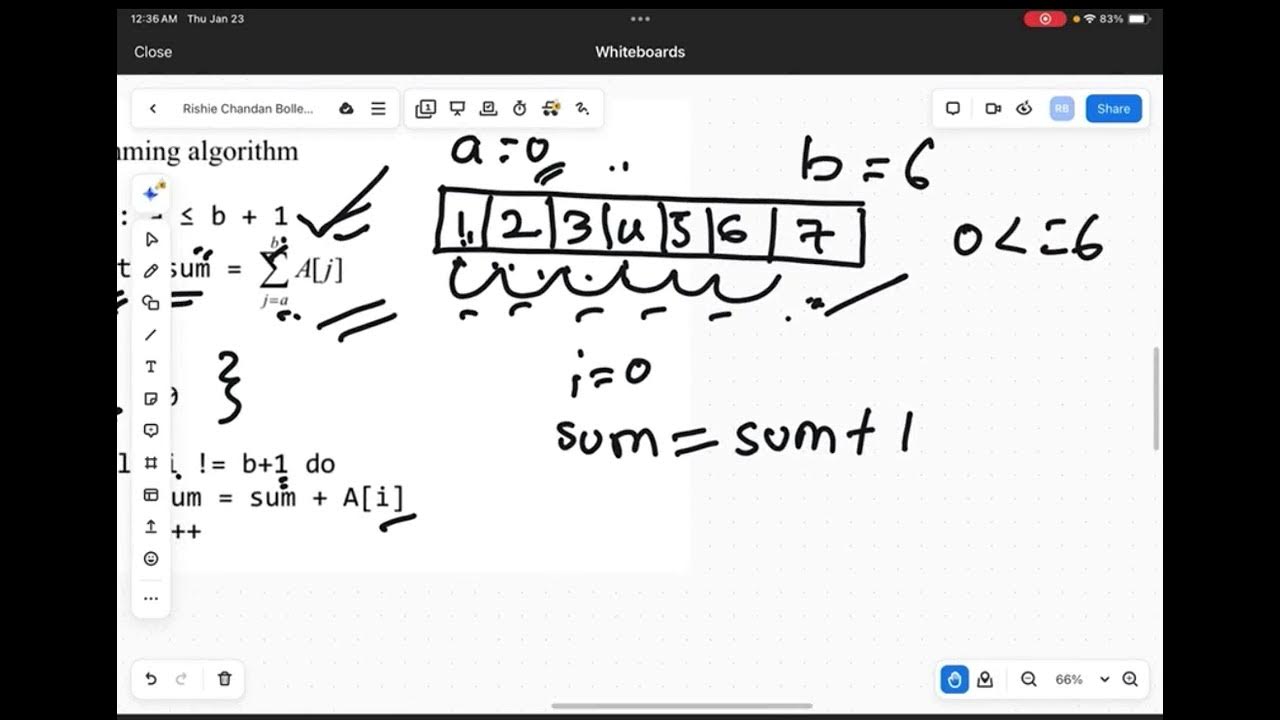 12:36 AM Thu Jan 23
83%
Close
Whiteboards
Rishie Chandan Bolle...
1
RB
Share
mming algorithm
a = 0
b = 6
: ≤ b + 1
1 2 3 4 5 6 7
0 < = 6
t sum = ∑ A[j]
b
j=a
}
i = 0
sum = sum + 1
l i != b+1 do
um = sum + A[i]
++
T
66%